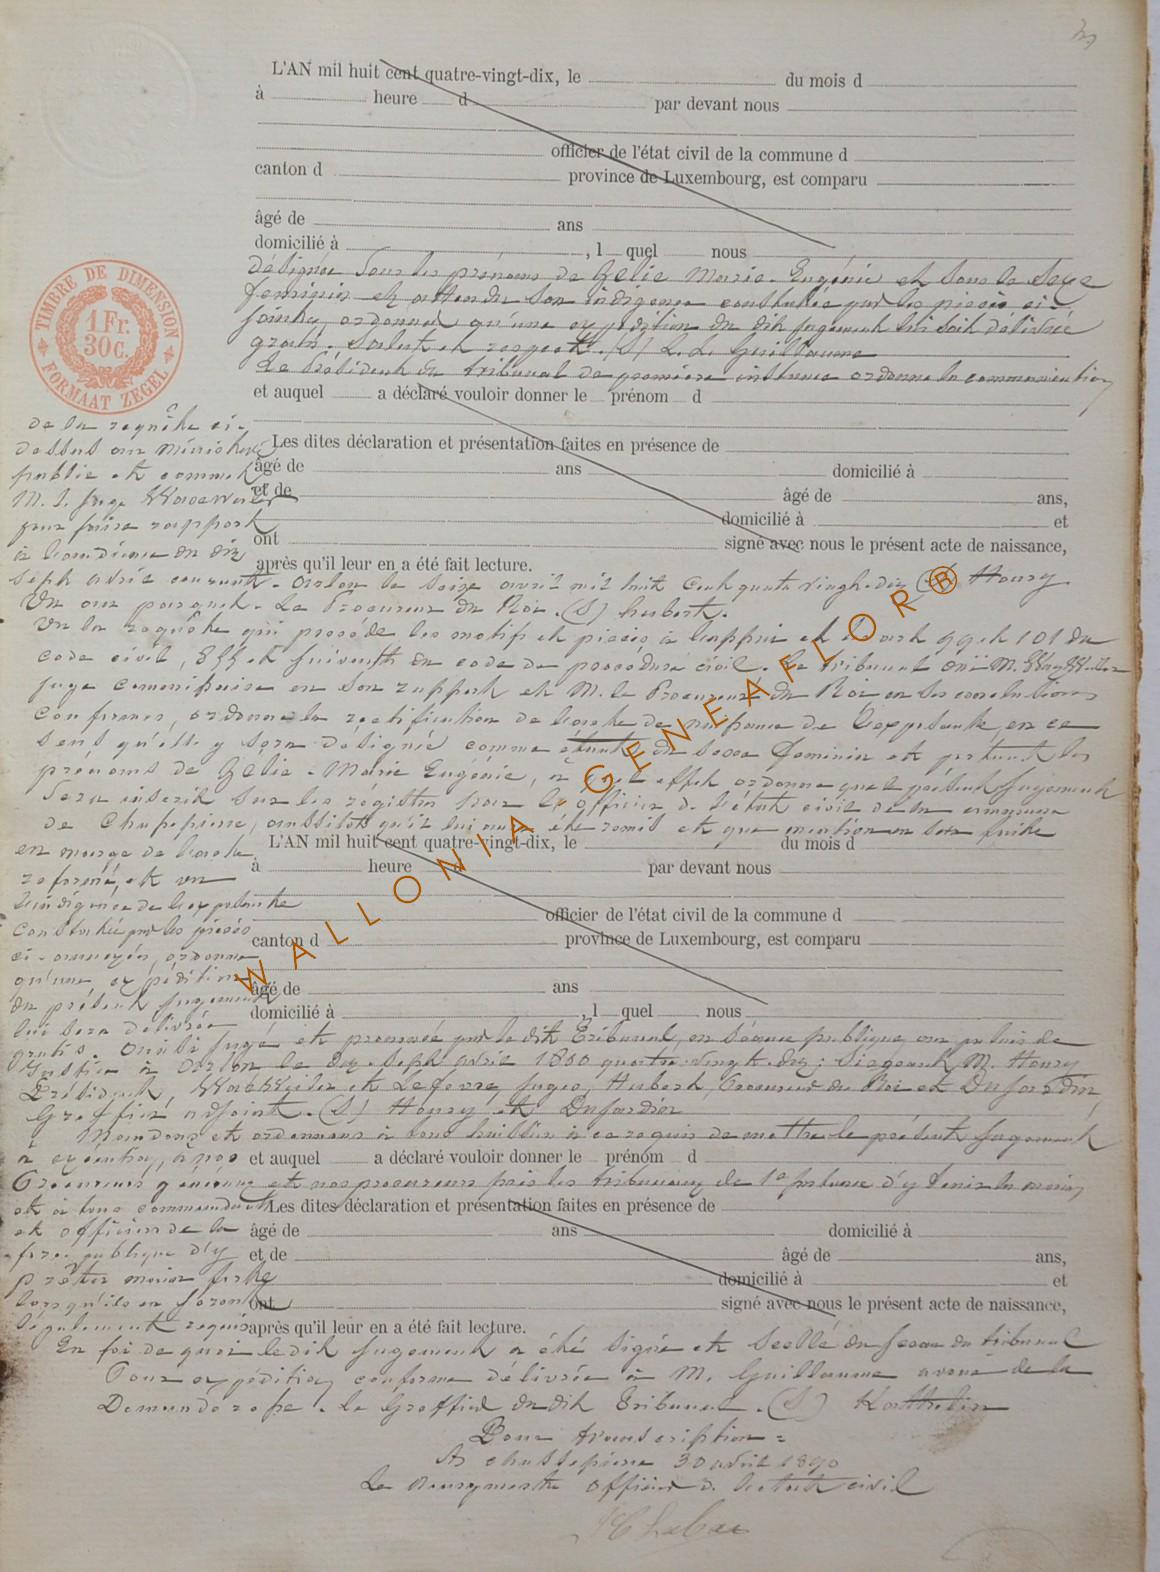 L'AN mil huit cent quatre-vingt-dix, le du mois d
à heure d par devant nous
officier de l'état civil de la commune d
canton d province de Luxembourg, est comparu
âgé de ans
domicilié à , l quel nous
désignée sous les prénoms de Zélie Marie Eugénie et sous le sexe
féminin et attendu son indigence constatée par les pièces ci-
jointes, ordonner qu'une expédition du dit jugement lui soit délivrée
gratis. Salut et respect. (S) L. L. Guillaume
Le Président du tribunal de première instance ordonne la communication
et auquel a déclaré vouloir donner le prénom d
de la requête ci-
dessus au ministère
Les dites déclaration et présentation faites en présence de
public et commet
âgé de ans domicilié à
M. I. juge
et de âgé de ans,
pour faire rapport
domicilié à et
à l'audience du dix
ont signé avec nous le présent acte de naissance,
après qu'il leur en a été fait lecture.
sept avril courant. Arlon le seize avril mil huit cent quatre vingt-dix (S) Houry
Vu au parquet. Le Procureur du Roi. (S) Hubert.
Vu la requête qui précède les motifs et pièces à l'appui et les art 99 et 101 du
code civil, 855 et suivants du code de procédure civil. Le tribunal ouï M.
juge commissaire en son rapport et M. le Procureur du Roi en ses conclusions
conformes, ordonne la rectification de l'acte de naissance de l'exposante, en ce
sens qu'elle y sera désignée comme étant du sexe féminin et portant les
prénoms de Zélie-Marie Eugénie, à quel effet ordonne que le présent jugement
sera inscrit sur les régistres par l'officier de l'état civil de la commune
de Chassepierre, aussitôt qu'il lui aura été remis et que mention en soit faite
L'AN mil huit cent quatre-vingt-dix, le du mois d
en marge de l'acte
à heure d par devant nous
reformé, et vu
l'indigence de l'exposante
officier de l'état civil de la commune d
constatée par les pièces
canton d province de Luxembourg, est comparu
ci-annexées, ordonne
qu'une expédition
âgé de ans
du présent jugement
domicilié à , l quel nous
lui sera délivrée
gratis. Ainsi jugé et prononcé par le dit Tribunal, en séance publique, au palais de
Justice à Arlon le dix-sept avril 1800 quatre-vingt-dix; Siégeant M. Houry
Président, et Lefèvre, juges, Hubert, Procureur du Roi et Dujardin,
Greffier adjoint. (S) Houry et Dujardin
Mandons et ordonnons à tous huissiers à ce requis de mettre le présent jugement
à exécution, à nos
et auquel a déclaré vouloir donner le prénom d
Procureurs généraux et nos procureurs près les tribunaux de 1e instance d'y tenir la main,
et à tous commandants
Les dites déclaration et présentation faites en présence de
et officiers de la
âgé de ans domicilié à
force publique d'y
et de âgé de ans,
prêter main forte
domicilié à et
lorsqu'ils en seront
ont signé avec nous le présent acte de naissance,
légalement requis
après qu'il leur en a été fait lecture.
En foi de quoi le dit jugement a été signé et scellé du sceau du tribunal
Pour expédition conforme délivrée à M. Guillaume avoué de la
Demanderesse. Le Greffier du dit Tribunal. (S)
Pour transcription =
A Chassepierre 30 avril 1890
Le Bourgmestre officier de l'état civil
TIMBRE DE DIMENSION
1 Fr.
30 c.
FORMAAT ZEGEL
WALLONIA GENEAFLOR®